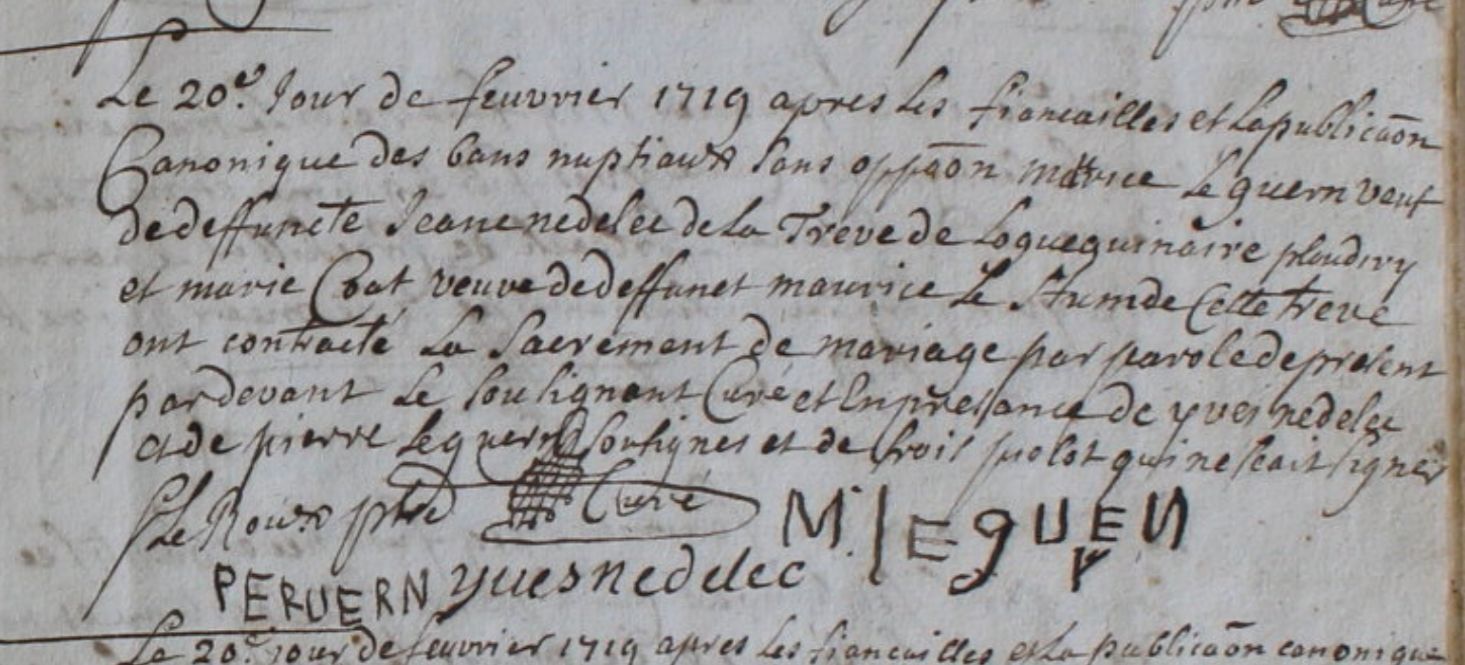 Le 20e. Jour de feuvrier 1719 apres les fiancailles et la publicaõn
Canonique des bans nuptiaux sans oppaõn maurice Le guern veuf
de deffuncte Jeane nedelec de la Treve de Loguequinaire ploudiry
et marie Coat veuve de deffunct maurice Le Stum de Cette treve
ont contracté La Sacrement de mariage par parole de present
par devant Le Soulignant Curé et En presance de yves nedelec
et de pierre Le guern Soulignes et de qui ne scait signer
Le Roux ptre Curé M. lE gUEN
r
PERUERN yuesnedelec
Le 20e. jour de feuvrier 1719 apres Les fiancailles et La publicaõn canonique